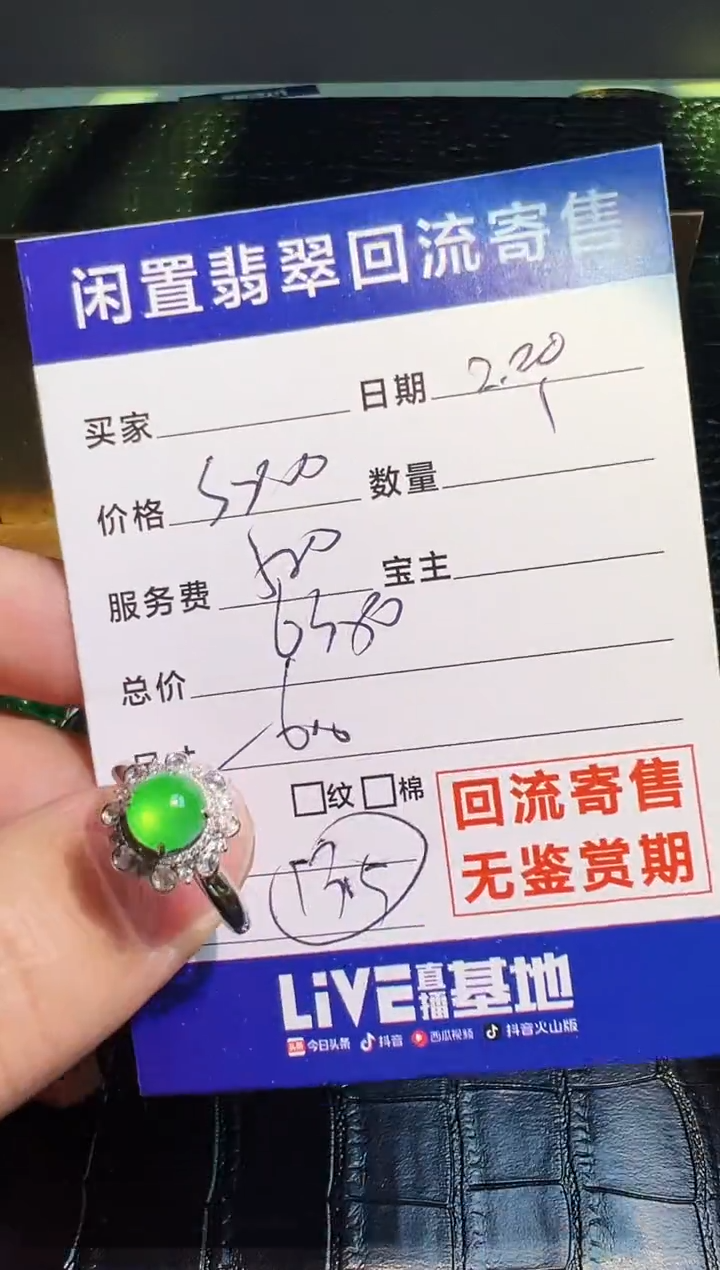 闲置翡翠回流寄售
买家 日期 2.20
价格 数量
服务费 宝主
总价
纹 棉
回流寄售
无鉴赏期
13.5
LiVE直播基地
头条 今日头条 抖音 西瓜视频 抖音火山版